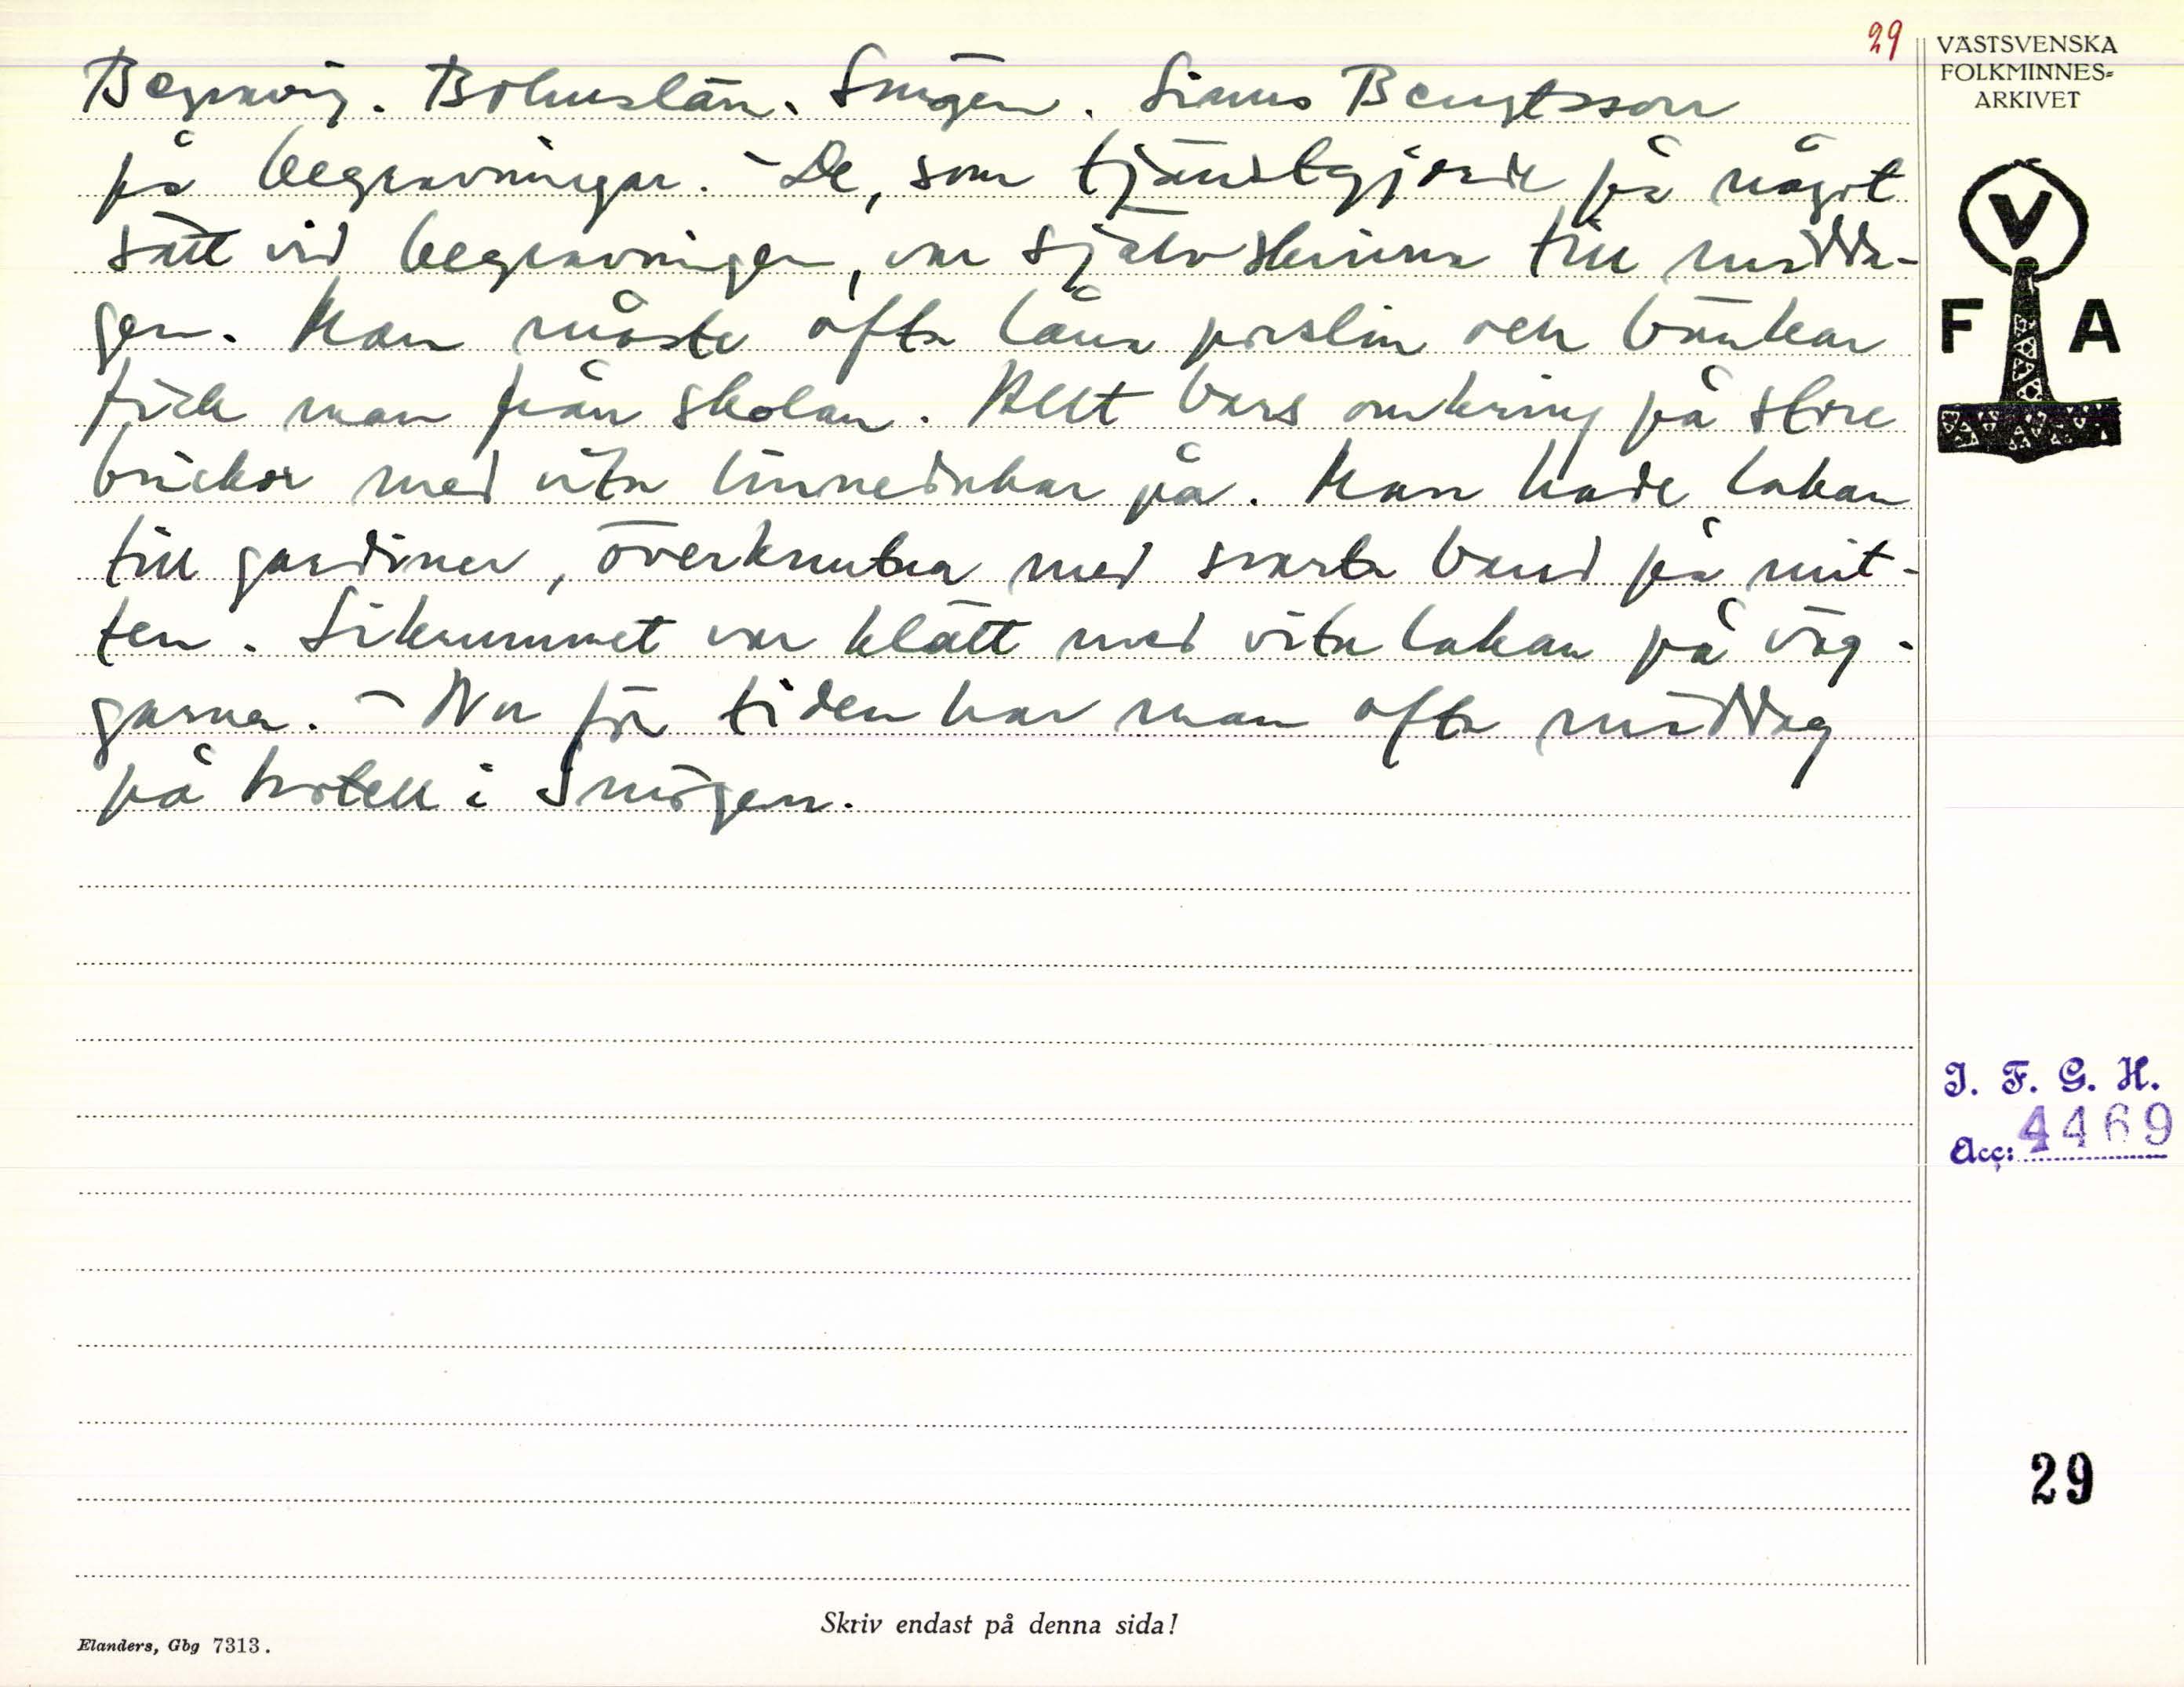 29
VÄSTSVENSKA
FOLKMINNES-
ARKIVET
Begravning. Bohuslän. Smögen. Linus Bengtsson
på begravningar. - De, som tjänstgjorde på något
sätt vid begravningen, var självskrivna till midda-
gen. Man måste ofta låna porslin och bänkar
fick man från skolan. Allt bars omkring på stora
brickor med vita linnedukar på. Man hade lakan
till gardiner, överknutna med svarta band på mit-
ten. Likrummet var klätt med vita lakan på väg-
garna. - Nu för tiden har man ofta middag
på hotell i Smögen.
V
F A
I. F. G. H.
Acc: 4469
29
Skriv endast på denna sida!
Elanders, Gbg 7313.